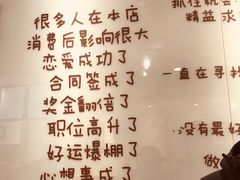 很多人在本店
消费后影响很大
恋爱成功了
合同签成了
奖金翻倍了
职位高升了
好运爆棚了
心想事成了
抓住就会
精益求
一直在寻找
没有最好
做